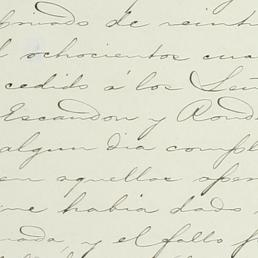 de veinti
ochocientos cua
cedido á los Señ
Escandon y Rond
algun dia compl
en aquellos oper
que habia dado
nada, y el fallo f